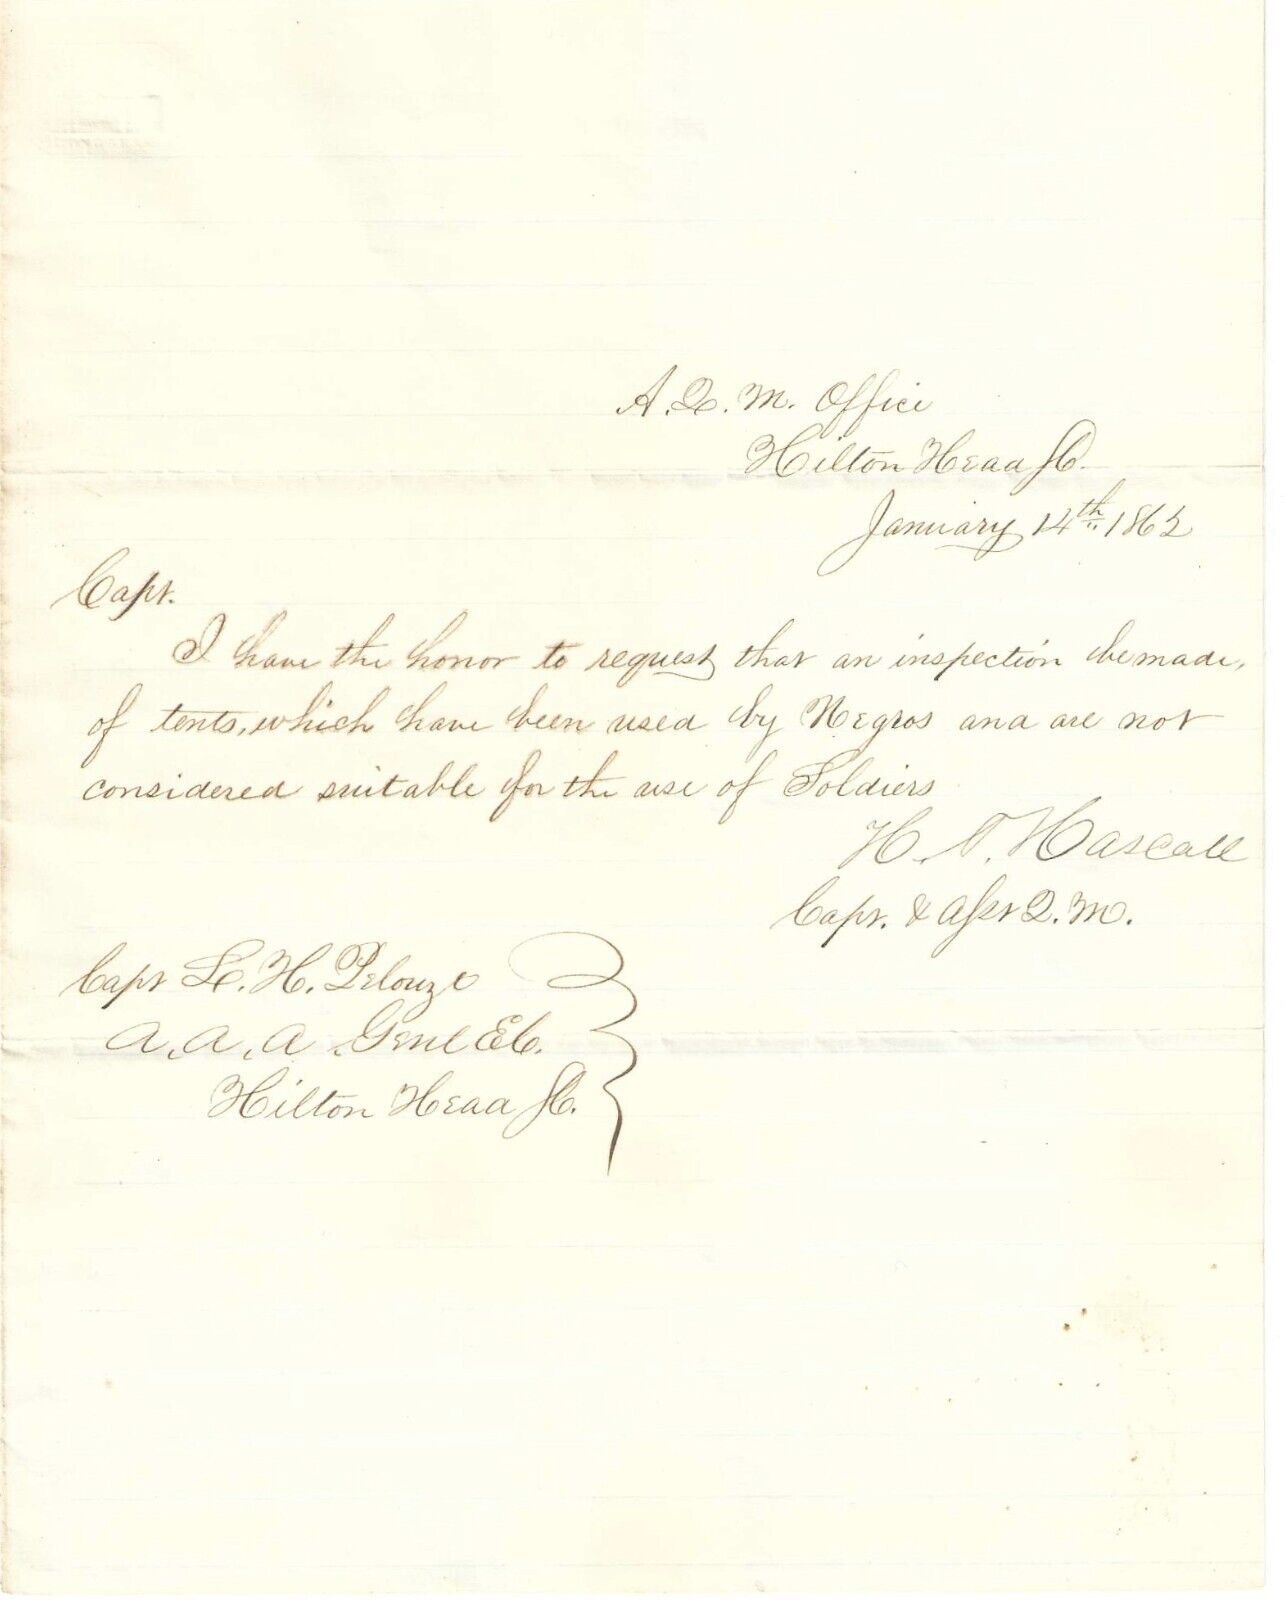 A. Q. M. Office
Hilton Head S.C.
January 14th 1862
Capt.
I have the honor to request that an inspection be made,
of tents, which have been used by Negros and are not
considered suitable for the use of Soldiers
H. A. Hascall
Capt. & Asst Q. M.
Capt L. H. Pelouze
A. A. A Genl E.C.
Hilton Head S.C.